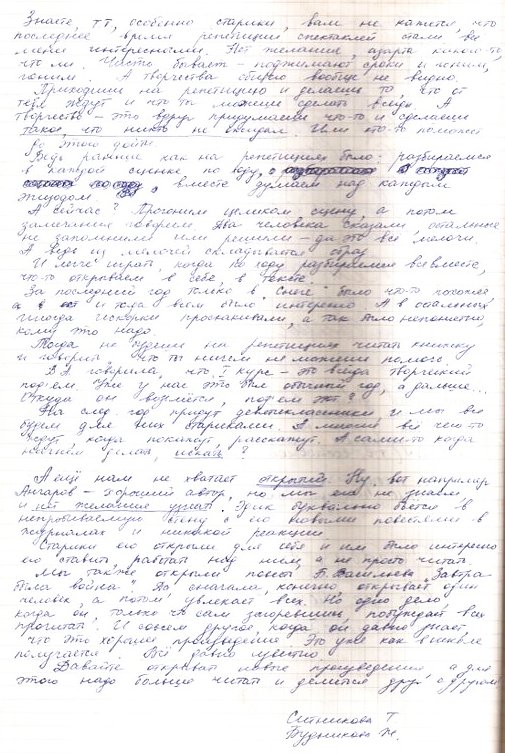 Знаете, ТТ, особенно старики, вам не кажется, что
последнее время репетиции спектаклей стали не
менее интересными. Нет желания, азарта какого-то,
что ли. Часто бывает – поджимают сроки и гоним,
гоним. А творчества общего вообще не видно.
Приходишь на репетицию и делаешь то, что от
тебя ждут и что ты можешь сделать всегда. А
творчество – это вдруг придумаешь что-то и сделаешь
такое, что никто не ожидал. Или кто-то поможет
до этого дойти.
Ведь раньше как на репетициях было: разбираемся
в каждой сценке по ходу,
вместе думаем над каждым
эпизодом
А сейчас? Прогоним целиком сцену, а потом
замечания говорим. Два человека сказали, остальные
не запомнили или решили – да это всё мелочи.
А ведь из мелочей складывается образ
И легче играть, когда по ходу разбираемся все вместе,
что-то открываем в себе, в тексте.
За последний год только в было что-то похожее
и тогда всем было интересно. А в остальных
иногда искорки проскакивали, а так было непонятно,
кому это надо.
Тогда не будешь на репетициях читать книжку
и говорить, что ты ничем не можешь помочь.
В.А. говорила, что I курс – это всегда творческий
подъем. Уже у нас это был обычный год, а дальше...
Откуда он возьмётся, подъем
На след. год придут девятиклассники и мы все
будем для них стариками. А многие всё что-то
ждут, когда покажут, расскажут. А сами-то когда
начнём делать, искать?
А ещё нам не хватает открытий. Ну, вот например
Ангаров – хороший автор, но мы его не знаем
и нет желания узнать. Эдик буквально бьется в
непробиваемую стену с его новыми повестями в
журналах и никакой реакции
Старики его открыли для себя и им было интересно
его ставить, работать над ним, а не просто читать.
Мы также открыли повесть Б. Васильева "Завтра
была война". Да сначала, конечно, открывает один
человек, а потом увлекает всех. Но одно дело
когда он только что сам загоревшись, побуждает всех
прочитать. И совсем другое, когда он давно знает
что это хорошее произведение. Это уже как в школе
получается. Всё равно известно
Давайте открывать новые произведения, а для
этого надо больше читать и делиться друг с другом.
Ситникова Т
Будникова Ж.